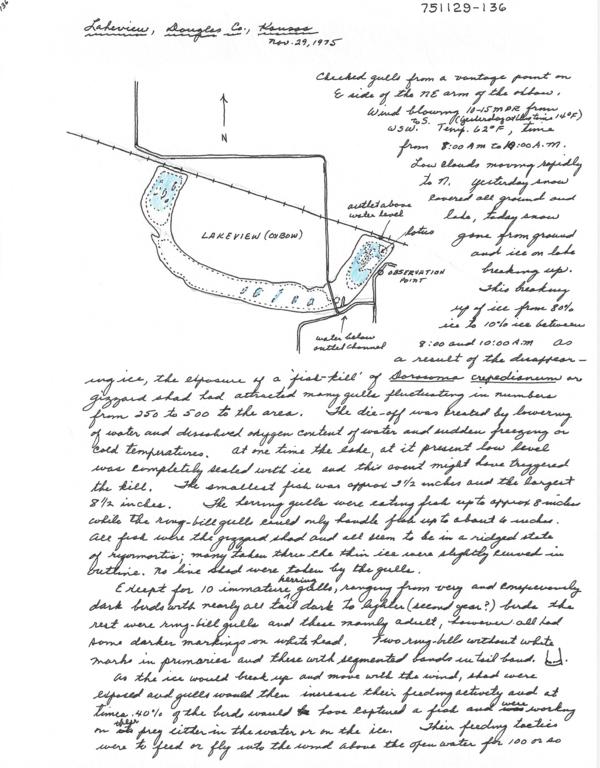 751129-136
Lakeview, Douglas Co., Kansas
Nov. 29, 1975
Checked gulls from a vantage point on
E side of the NE arm of the oxbow.
Wind blowing 10-15 MPR from
to S. (Yesterday at this time 14°F)
WSW. Temp. 62°F, time
from 8:00 AM to 10:00 A.M.
Low clouds moving rapidly
to N. Yesterday snow
covered all ground and
lake, today snow
gone from ground
and ice on lake
breaking up.
This breaking
up of ice from 80%
ice to 10% ice between
8:00 and 10:00 A.M as
a result of the disappear-
N
LAKEVIEW (OXBOW)
outlet above
water level
lotus
OBSERVATION
POINT
water below
outlet channel
ing ice, the exposure of a 'fish-kill' of Dorosoma cepedianum or
gizzard shad had attracted many gulls fluctuating in numbers
from 250 to 500 to the area. The die-off was created by lowering
of water and dissolved oxygen content of water and sudden freezing or
cold temperatures. At one time the lake, at it present low level
was completely sealed with ice and this event might have triggered
the kill. The smallest fish was approx 3 1/2 inches and the largest
8 1/2 inches. The herring gulls were eating fish up to approx 8 inches
while the ring-bill gulls could only handle fish up to about 6 inches.
All fish were the gizzard shad and all seem to be in a ridged state
of rigormortis; many taken thru the thin ice were slightly curved in
outline. No line shed were taken by the gulls.
Except for 10 immature herring gulls, ranging from very and
dark birds with nearly all tail dark to lighter (second year?) birds the
rest were ring-bill gulls and these mainly adult, however all had
some darker markings on white head. Two ring-bills without white
marks in primaries and these with segmented bands in tail band.
As the ice would break up and move with the wind, shad were
exposed and gulls would then increase their feeding activity and at
times 40% of the birds would have captured a fish and were working
on their prey either in the water or on the ice. Their feeding tactics
were to feed or fly into the wind above the open water for 100 or so